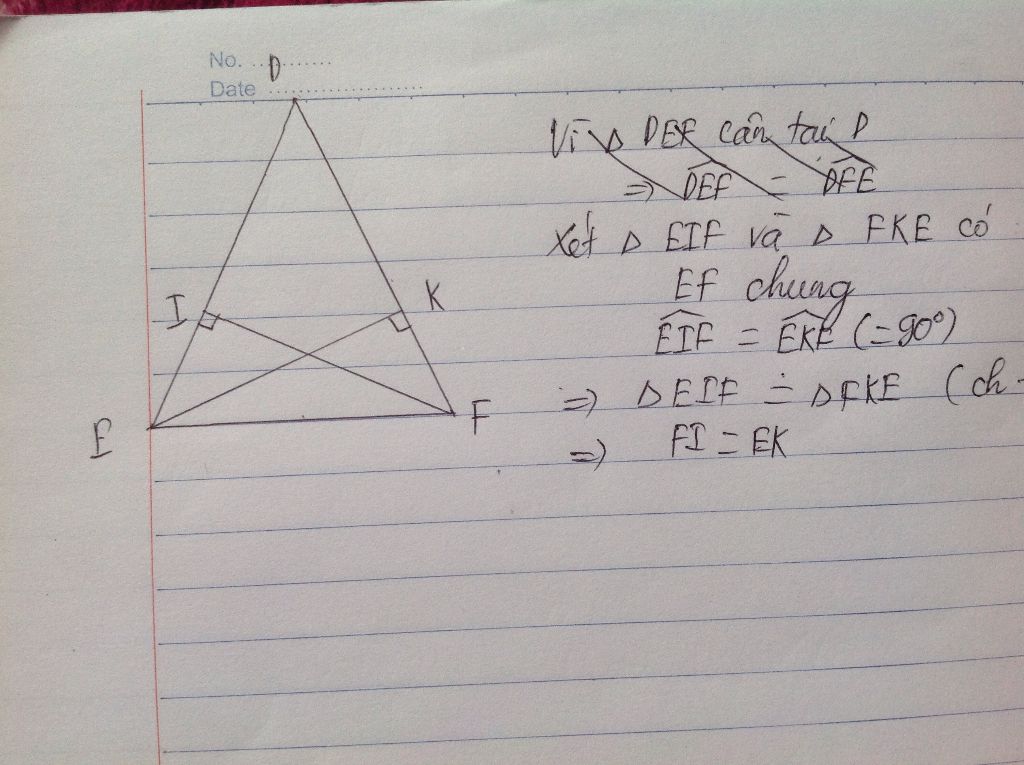 No. ..........
Date ......................
D
I
K
E
F
Vì Δ DEF cân tại D
=> DEF̂ = DFÊ
Xét Δ EIF và Δ FKE có
EF chung
EIF̂ = EKF̂ (=90°)
=> Δ EIF = Δ FKE (ch -
=> FI = EK